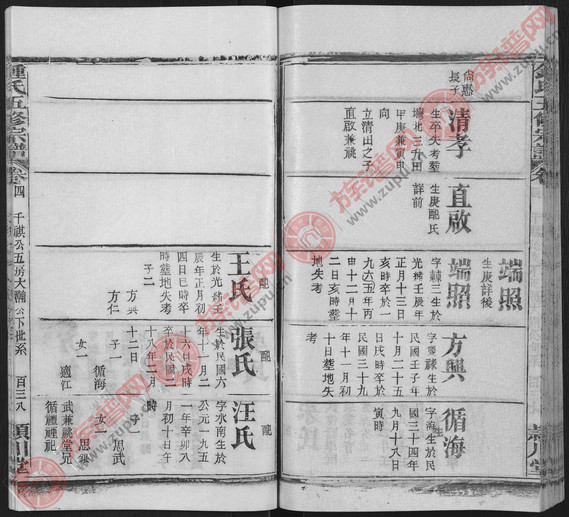 尚懸
長子
清孝
生卒失考葬
塘坵三九田
甲庚兼寅申
向
立清山之子
直啟兼祧
直啟
生庚配氏
詳前
端照
生庚詳後
端照
字棘三生於
光緒壬辰年
正月十三日
亥時卒於一
九六五年丙
申十二月十
二日亥時葬
地失考
方興
字
祿生於
民國壬子年
十月二十五
日戌時卒於
民國三十九
年十一月初
十日葬地失
考
循海
字海生於民
國三十四年
九月十八日
寅時
鍾氏五修宗譜
卷
四
千祺公五房大
公下世系
百三八
潁川堂
配
王氏
生於光緒壬
辰年正月初
四日巳時卒
葬地失考
子二
方興
方仁
配
張氏
生於民國六
年十一月二
十六日戌時
卒於民國二
十八年二月
十二日
時
子一
循海
女一
適江
配
汪氏
字水南生於
公元一九五
一年辛卯八
月初十日午
時
子一
思武
女一
思
武兼祧堂兄
循禮禋祀
www.zupu.cn
族譜网